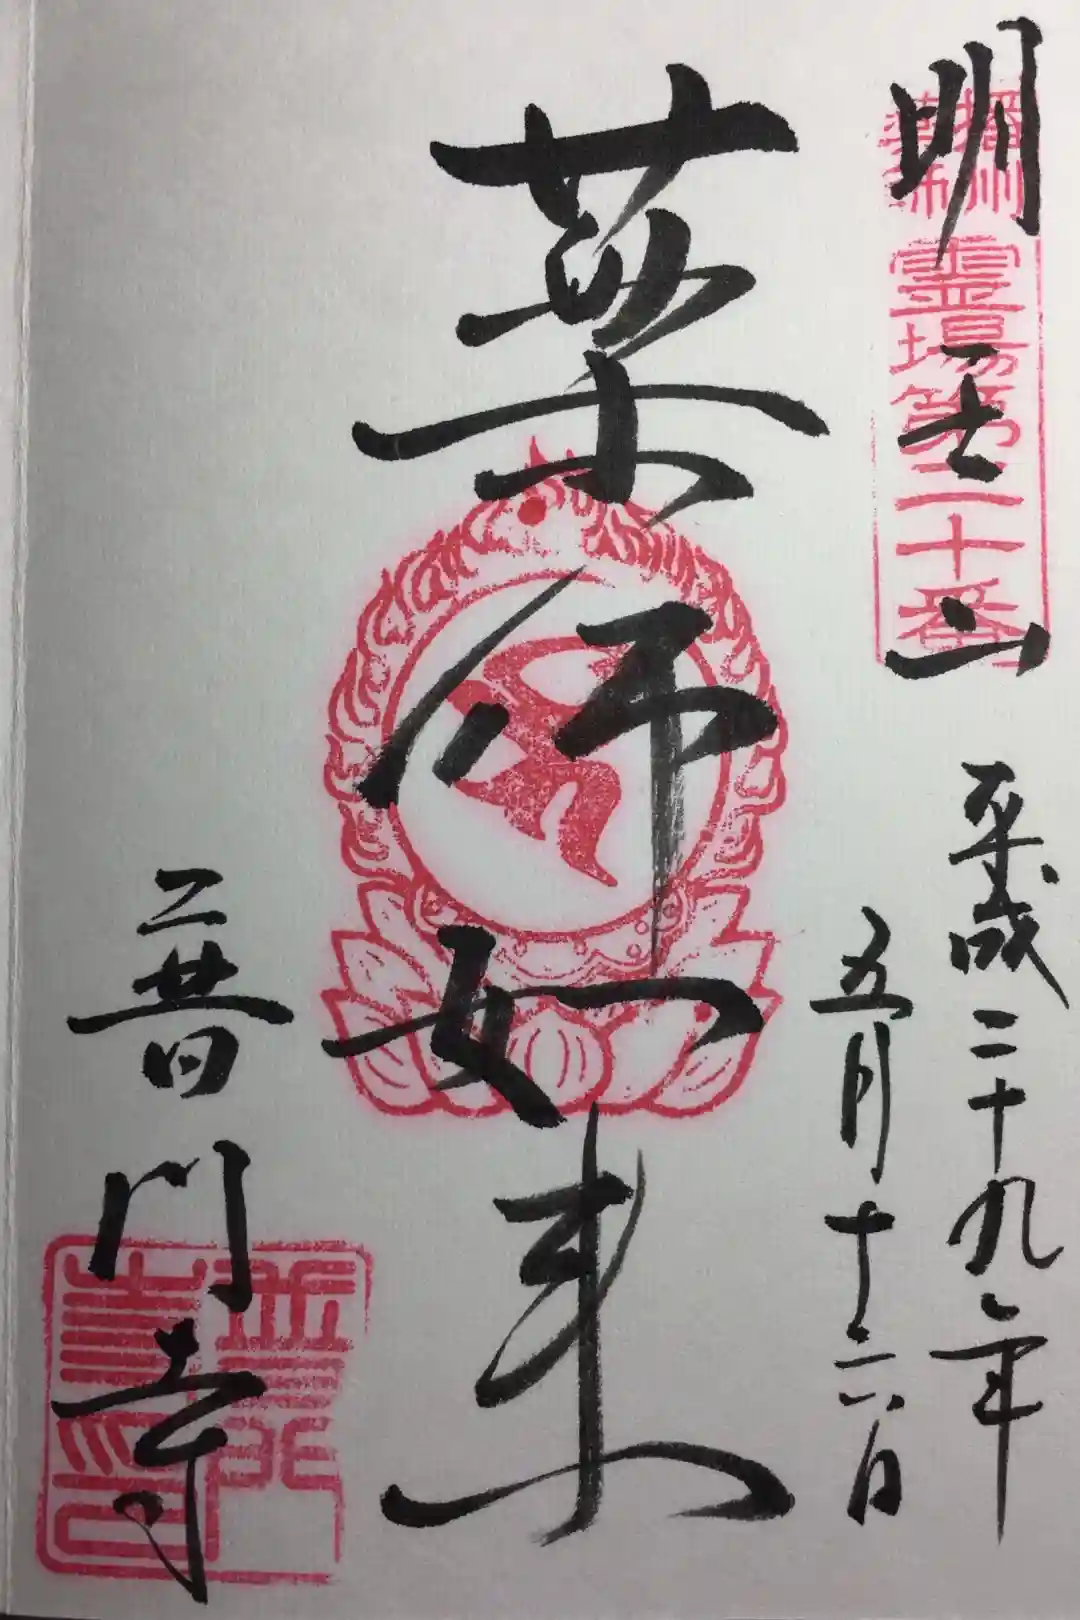 明王山
播州
薬師
霊場第二十番
平成二十九年
五月十六日
薬師如来
普門寺